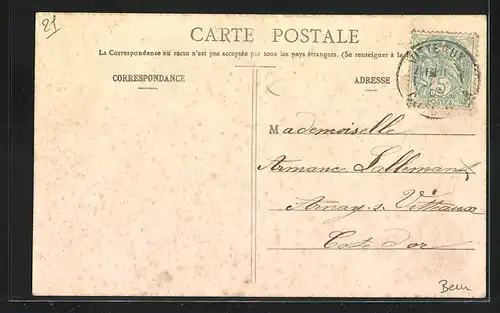 21
CARTE POSTALE
La Correspondance au recto n'est pas acceptée par tous les pays étrangers. (Se renseigner à la
CORRESPONDANCE
ADRESSE
Mademoiselle
Armance Lallemant
Arnay s. Vitteaux
Cote d'or
Beur